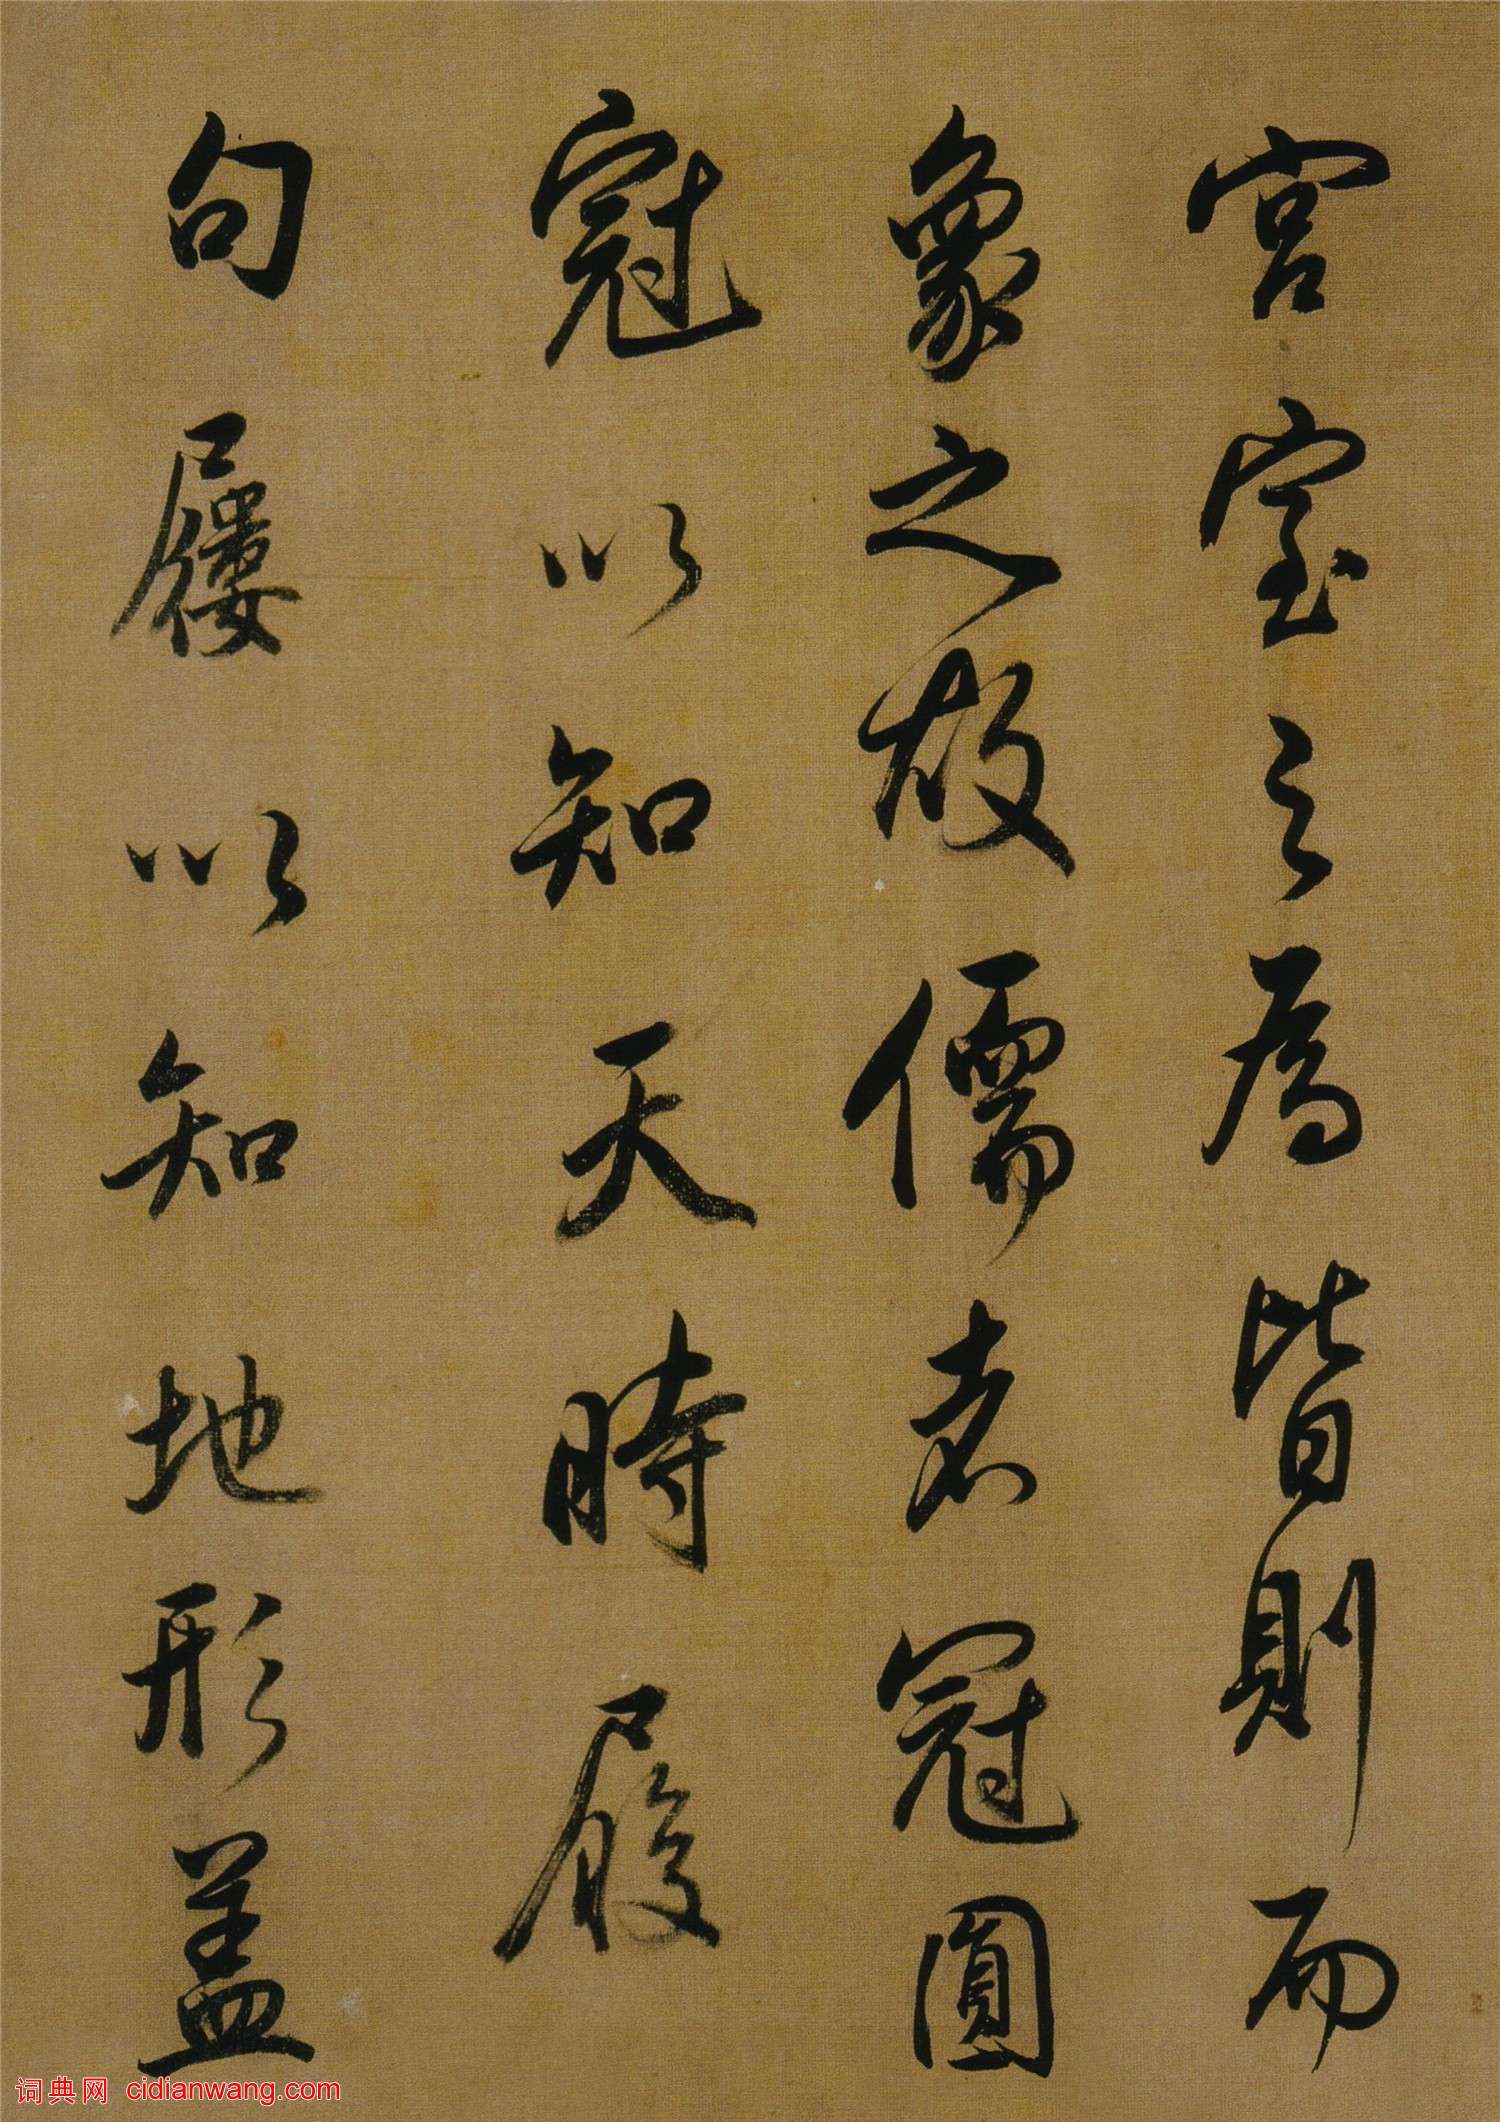 宮室之為皆則而
象之故儒者冠圓
冠以知天時履
句屨以知地形蓋
词典网 cidianwang.com